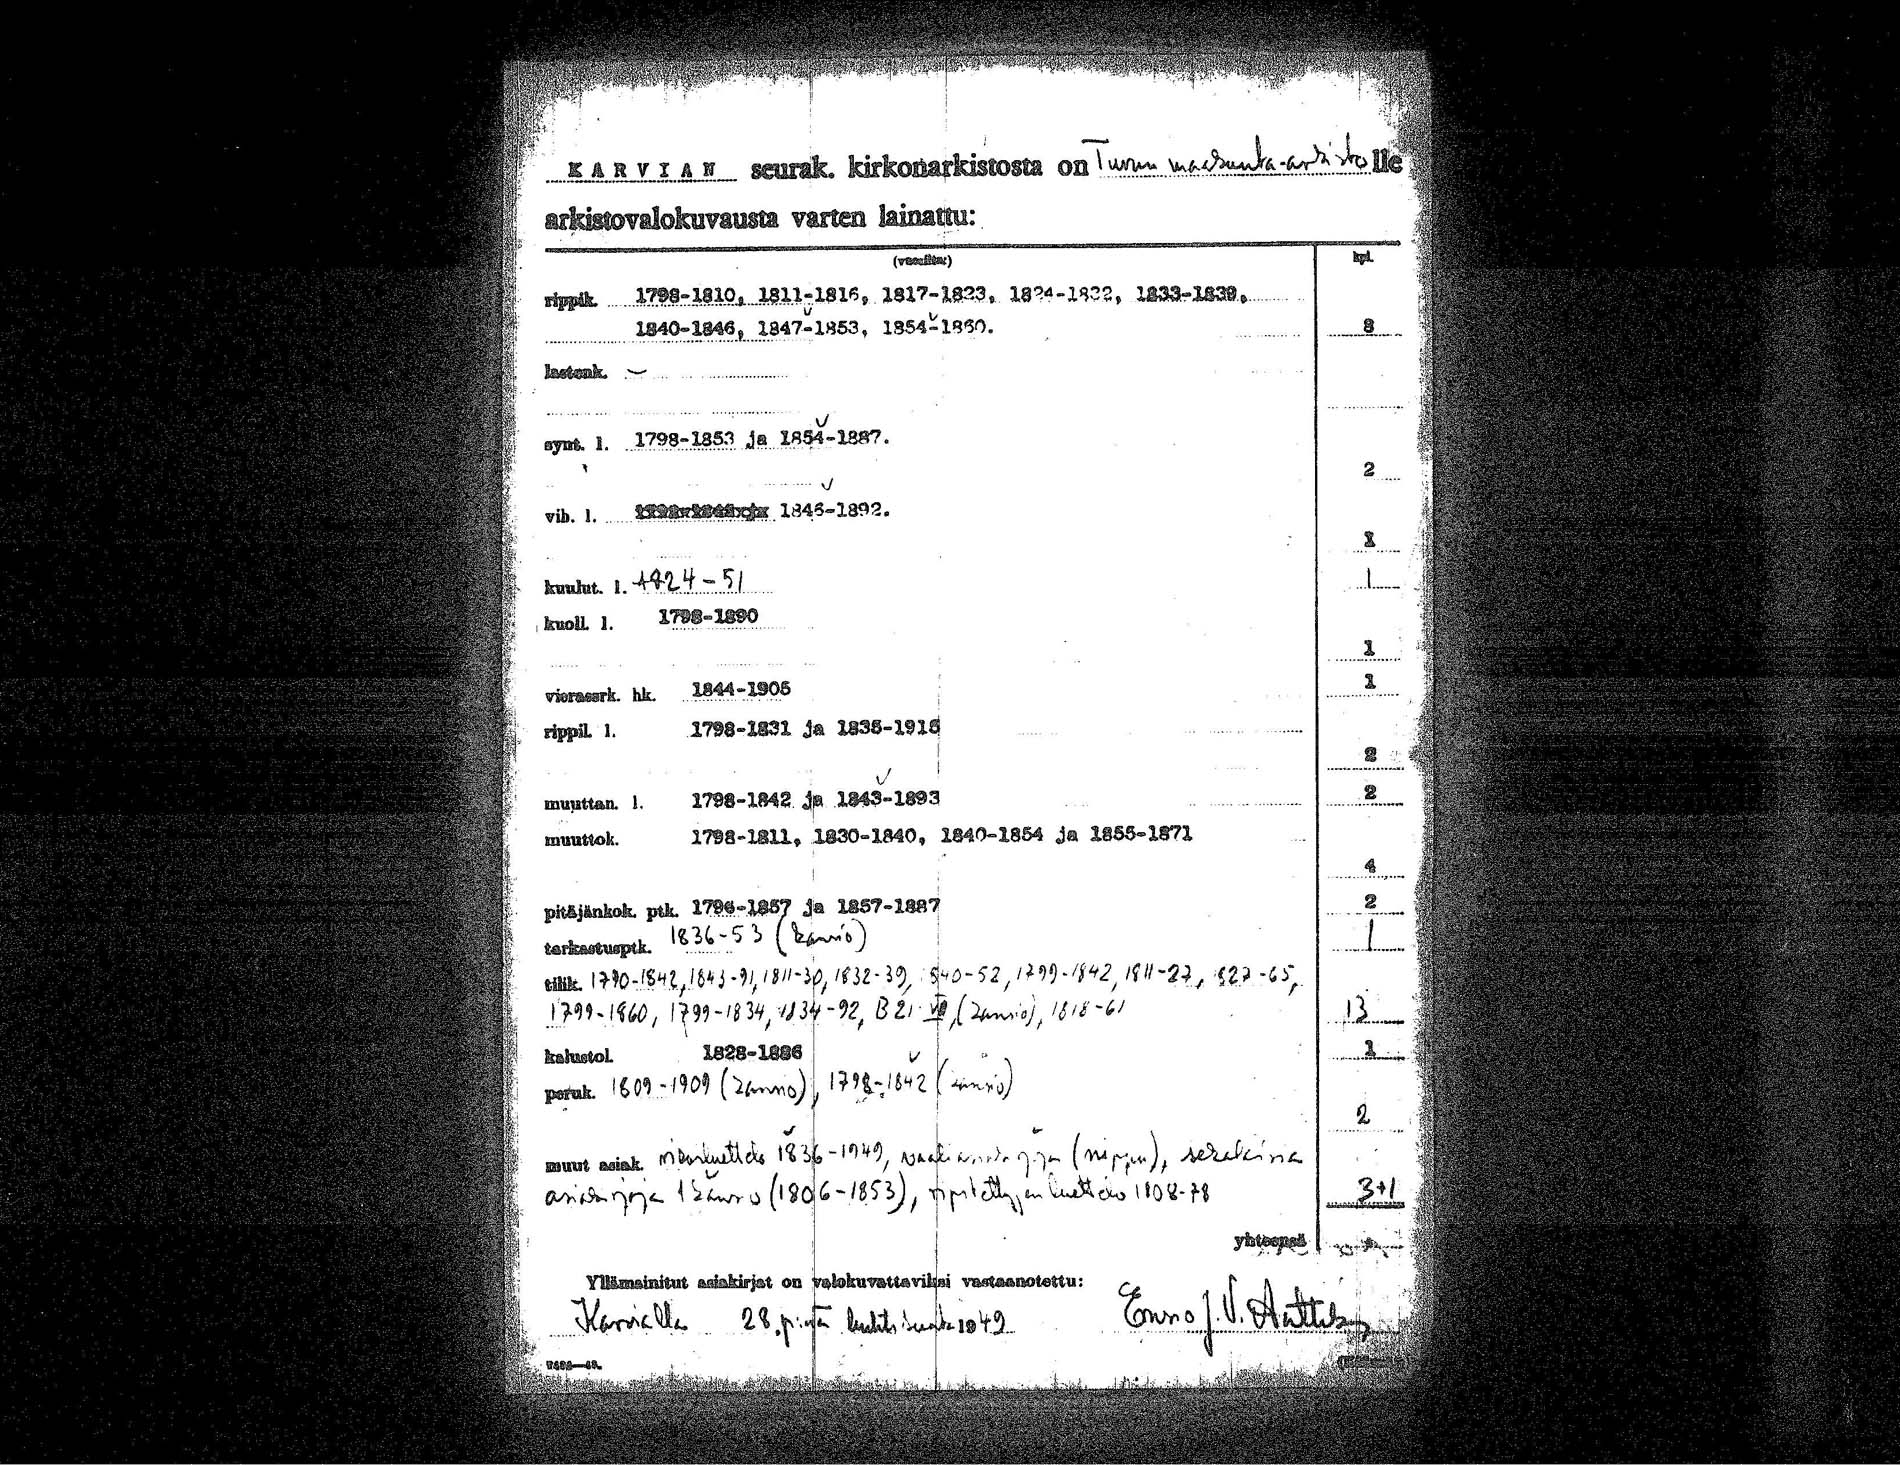 KARVIAN seurak. kirkonarkistosta on Turun maakunta-arkistolle
arkistovalokuvausta varten lainattu:
(vuosilta:) kpl.
rippik. 1798-1810, 1811-1816, 1817-1823, 1824-1832, 1833-1839,
1840-1846, 1847-1853, 1854-1860. 8
lastenk. —
synt. l. 1798-1853 ja 1854-1887.
2
vih. l. 1846-1892.
1
kuulut. l. 1824-51 1
kuoll. l. 1798-1890
1
vierassrk. hk. 1844-1905 1
rippil. l. 1798-1831 ja 1835-1915
2
muuttan. l. 1798-1842 ja 1843-1893 2
muuttok. 1798-1811, 1830-1840, 1840-1854 ja 1855-1871
4
pitäjänkok. ptk. 1796-1857 ja 1857-1887 2
tarkastusptk. 1836-53 (kansio) 1
tilik. 1790-1842, 1843-91, 1811-30, 1832-39, 1840-52, 1799-1842, 1811-27, 1827-65,
1799-1860, 1799-1834, 1834-92, B 21 (kansio), 1818-61 13
kalustol. 1828-1886 1
peruk. 1809-1909 (kansio), 1798-1842 (kansio)
2
muut asiak. 1836-1949, (nippu), sekalaisia
asiakirjoja 1 kansio (1806-1853), ripitettyjen luettelo 1808-78 3+1
yhteensä
Yllämainitut asiakirjat on valokuvattaviksi vastaanotettu:
Karvialla 28. p:nä huhtikuuta 1949 J. V.